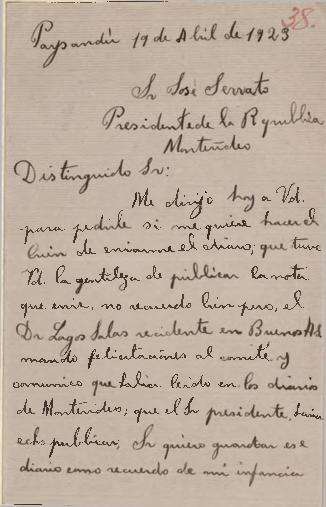 38.
Paysandú 19 de Abril de 1923
Sr José Serrato
Presidente de la Republica
Montevideo
Distinguido Sr:
Me dirijo hoy a Vd.
para pedirle si me quiere hacer el
bien de enviarme el diario, que tuvo
Vd. la gentileza de publicar la nota
que envie, no recuerdo bien pero, el
Dr Lagos Salas recidente en Buenos As
mando felicitaciones al comité y
comunico que habia leido en los diarios
de Montevideo, que el Sr presidente, havia
echo publicar, Sr quiero guardar ese
diario como recuerdo de mi infancia